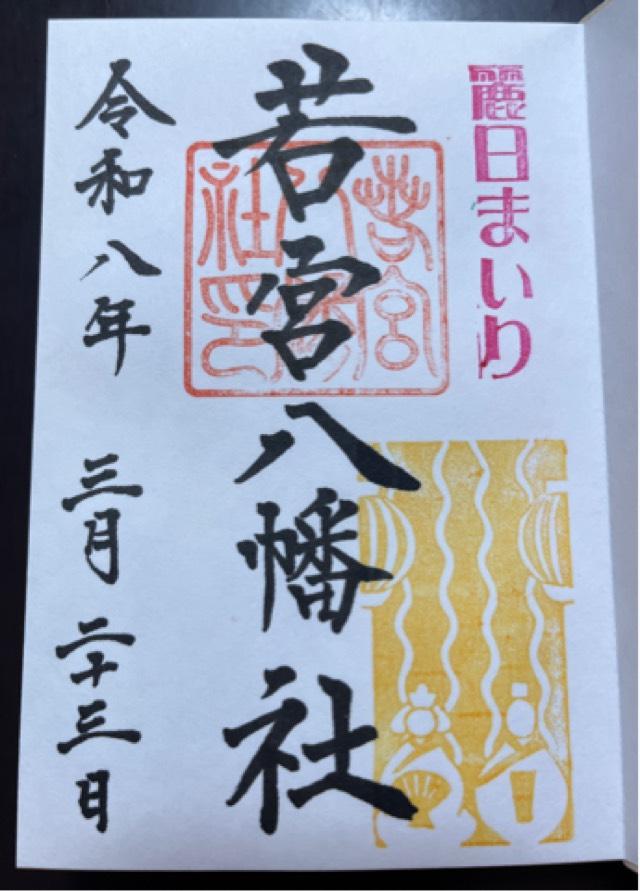 麗日まいり
若宮八幡社
若宮
八幡
社印
令和八年 三月 二十三日